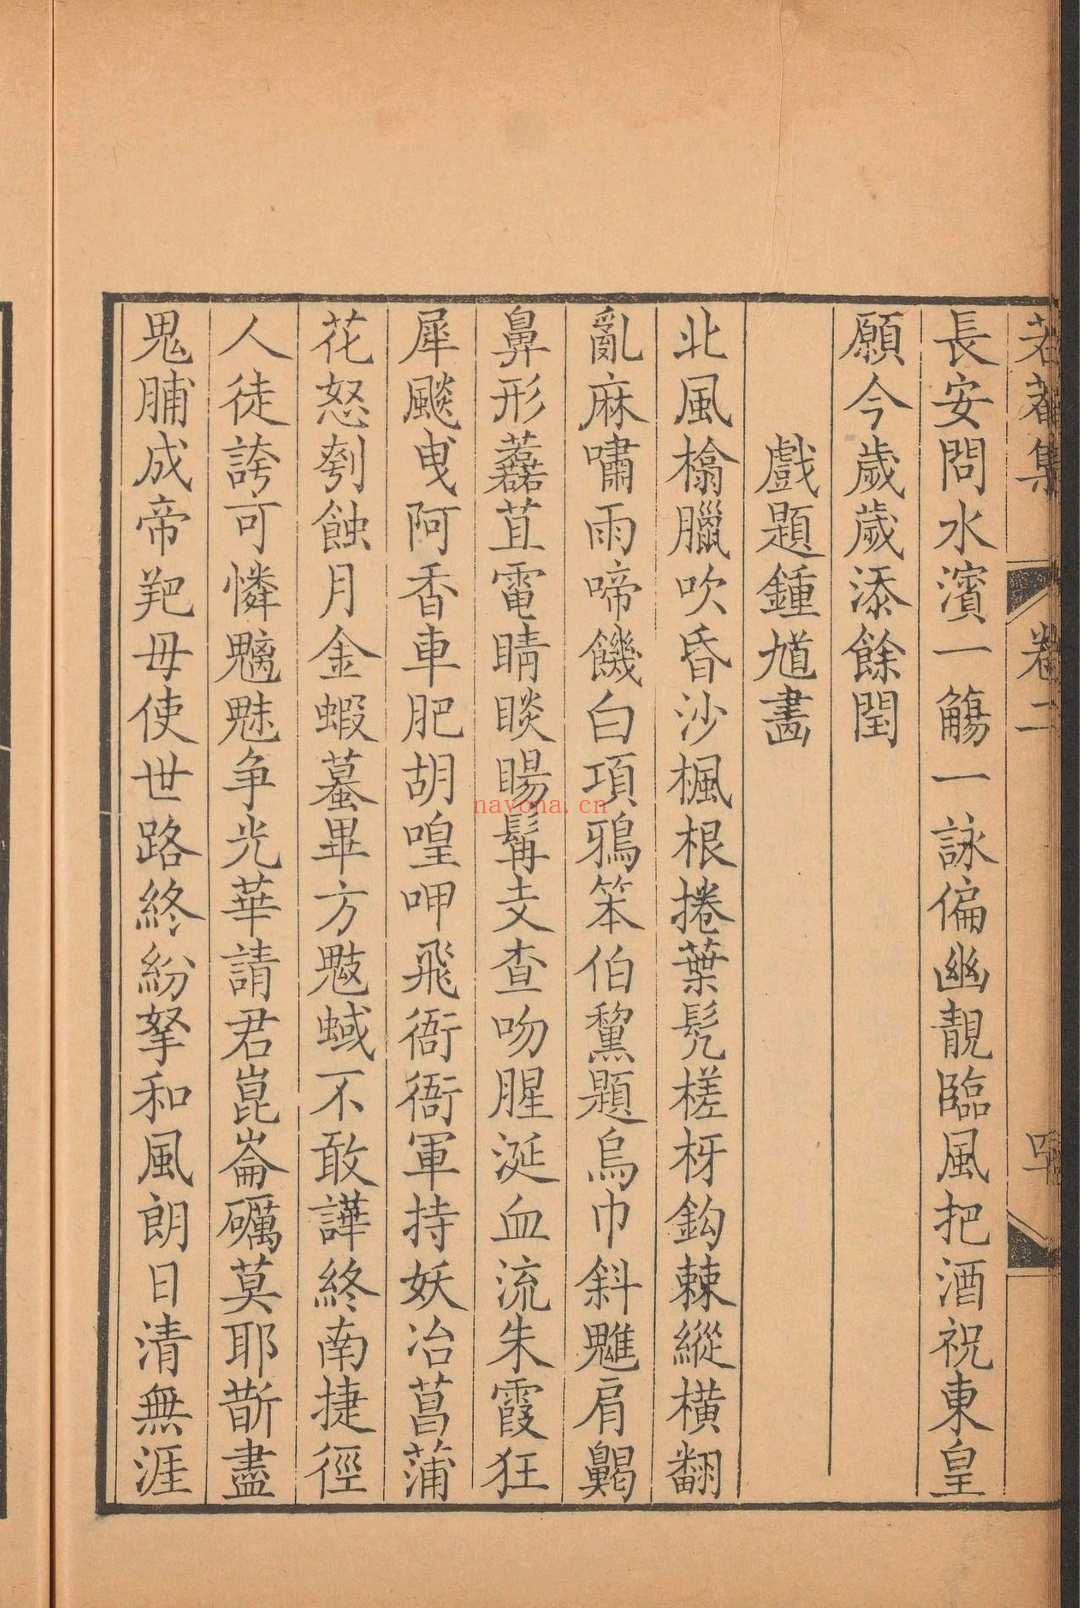 長安問水濱一觴一詠偏幽靚臨風把酒祝東皇
願今歲歲添餘閏
戲題鍾馗畵
北風檎臘吹昏沙楓根捲葉髠槎枒鈎棘縱橫翻
亂麻嘯雨啼饑白項鴉笨伯黧題烏巾斜魋肩齃
鼻形藞苴電睛睒暘髯夌查吻腥涎血流朱霞狂
犀颷曳阿香車肥胡喤呷飛衙衙軍持妖冶菖蒲
花怒刳蝕月金蝦蟇畢方魃蜮不敢譁終南捷徑
人徒誇可憐魑魅争光華請君崑崙礪莫耶斮盡
鬼脯成帝羓毋使世路終紛拏和風朗日清無涯
卷二
nayona.cn